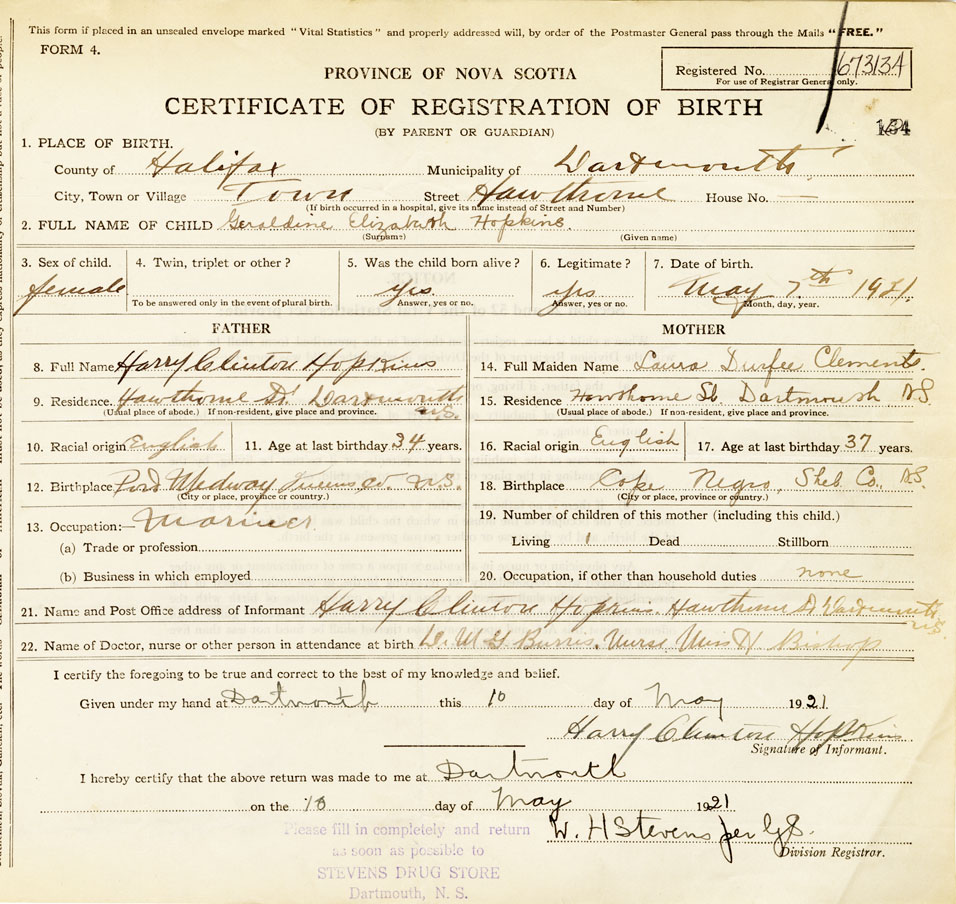 This form if placed in an unsealed envelope marked "Vital Statistics" and properly addressed will, by order of the Postmaster General pass through the Mails "FREE."
FORM 4.
Registered No. 673134
For use of Registrar General only.
PROVINCE OF NOVA SCOTIA
CERTIFICATE OF REGISTRATION OF BIRTH
(BY PARENT OR GUARDIAN)
134
1. PLACE OF BIRTH.
County of Halifax Municipality of Dartmouth
City, Town or Village Town Street Hawthorne House No. —
(If birth occurred in a hospital, give its name instead of Street and Number)
2. FULL NAME OF CHILD Geraldine Elizabeth Hopkins.
(Surname) (Given name)
3. Sex of child. 4. Twin, triplet or other? 5. Was the child born alive? 6. Legitimate? 7. Date of birth.
female yes yes May 7th 1921.
To be answered only in the event of plural birth. Answer, yes or no. Answer, yes or no. Month, day, year.
FATHER MOTHER
8. Full Name Harry Clinton Hopkins
14. Full Maiden Name Laura Durfee Clements.
9. Residence. Hawthorne St. Dartmouth N.S.
(Usual place of abode.) If non-resident, give place and province.
15. Residence Hawthorne St. Dartmouth, N.S.
(Usual place of abode.) If non-resident, give place and province.
10. Racial origin English 11. Age at last birthday 34 years.
16. Racial origin English 17. Age at last birthday 37 years.
12. Birthplace Port Medway Queens Co. N.S.
(City or place, province or country.)
18. Birthplace Cape Negro, Shel. Co., N.S.
(City or place, province or country.)
13. Occupation:— Mariner.
(a) Trade or profession
(b) Business in which employed
19. Number of children of this mother (including this child.)
Living 1 Dead Stillborn
20. Occupation, if other than household duties none
21. Name and Post Office address of Informant Harry Clinton Hopkins Hawthorne St Dartmouth N.S.
22. Name of Doctor, nurse or other person in attendance at birth Burris. Nurse Miss H Bishop
I certify the foregoing to be true and correct to the best of my knowledge and belief.
Given under my hand at Dartmouth this 10 day of May 1921.
Harry Clinton Hopkins
Signature of Informant.
I hereby certify that the above return was made to me at Dartmouth
on the 10 day of May 1921
W. H Stevens per G.S.
Division Registrar.
Please fill in completely and return
as soon as possible to
STEVENS DRUG STORE
Dartmouth, N. S.